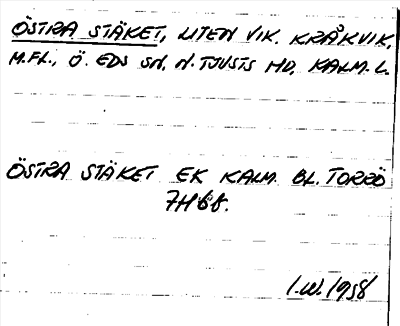 ÖSTRA STÄKET, LITEN VIK. KRÅKVIK,
M.FL., Ö. EDS SN, N. TJUSTS HD, KALM. L.
ÖSTRA STÄKET EK KALM. BL. TORRÖ
7H 6f.
I.W. 1958